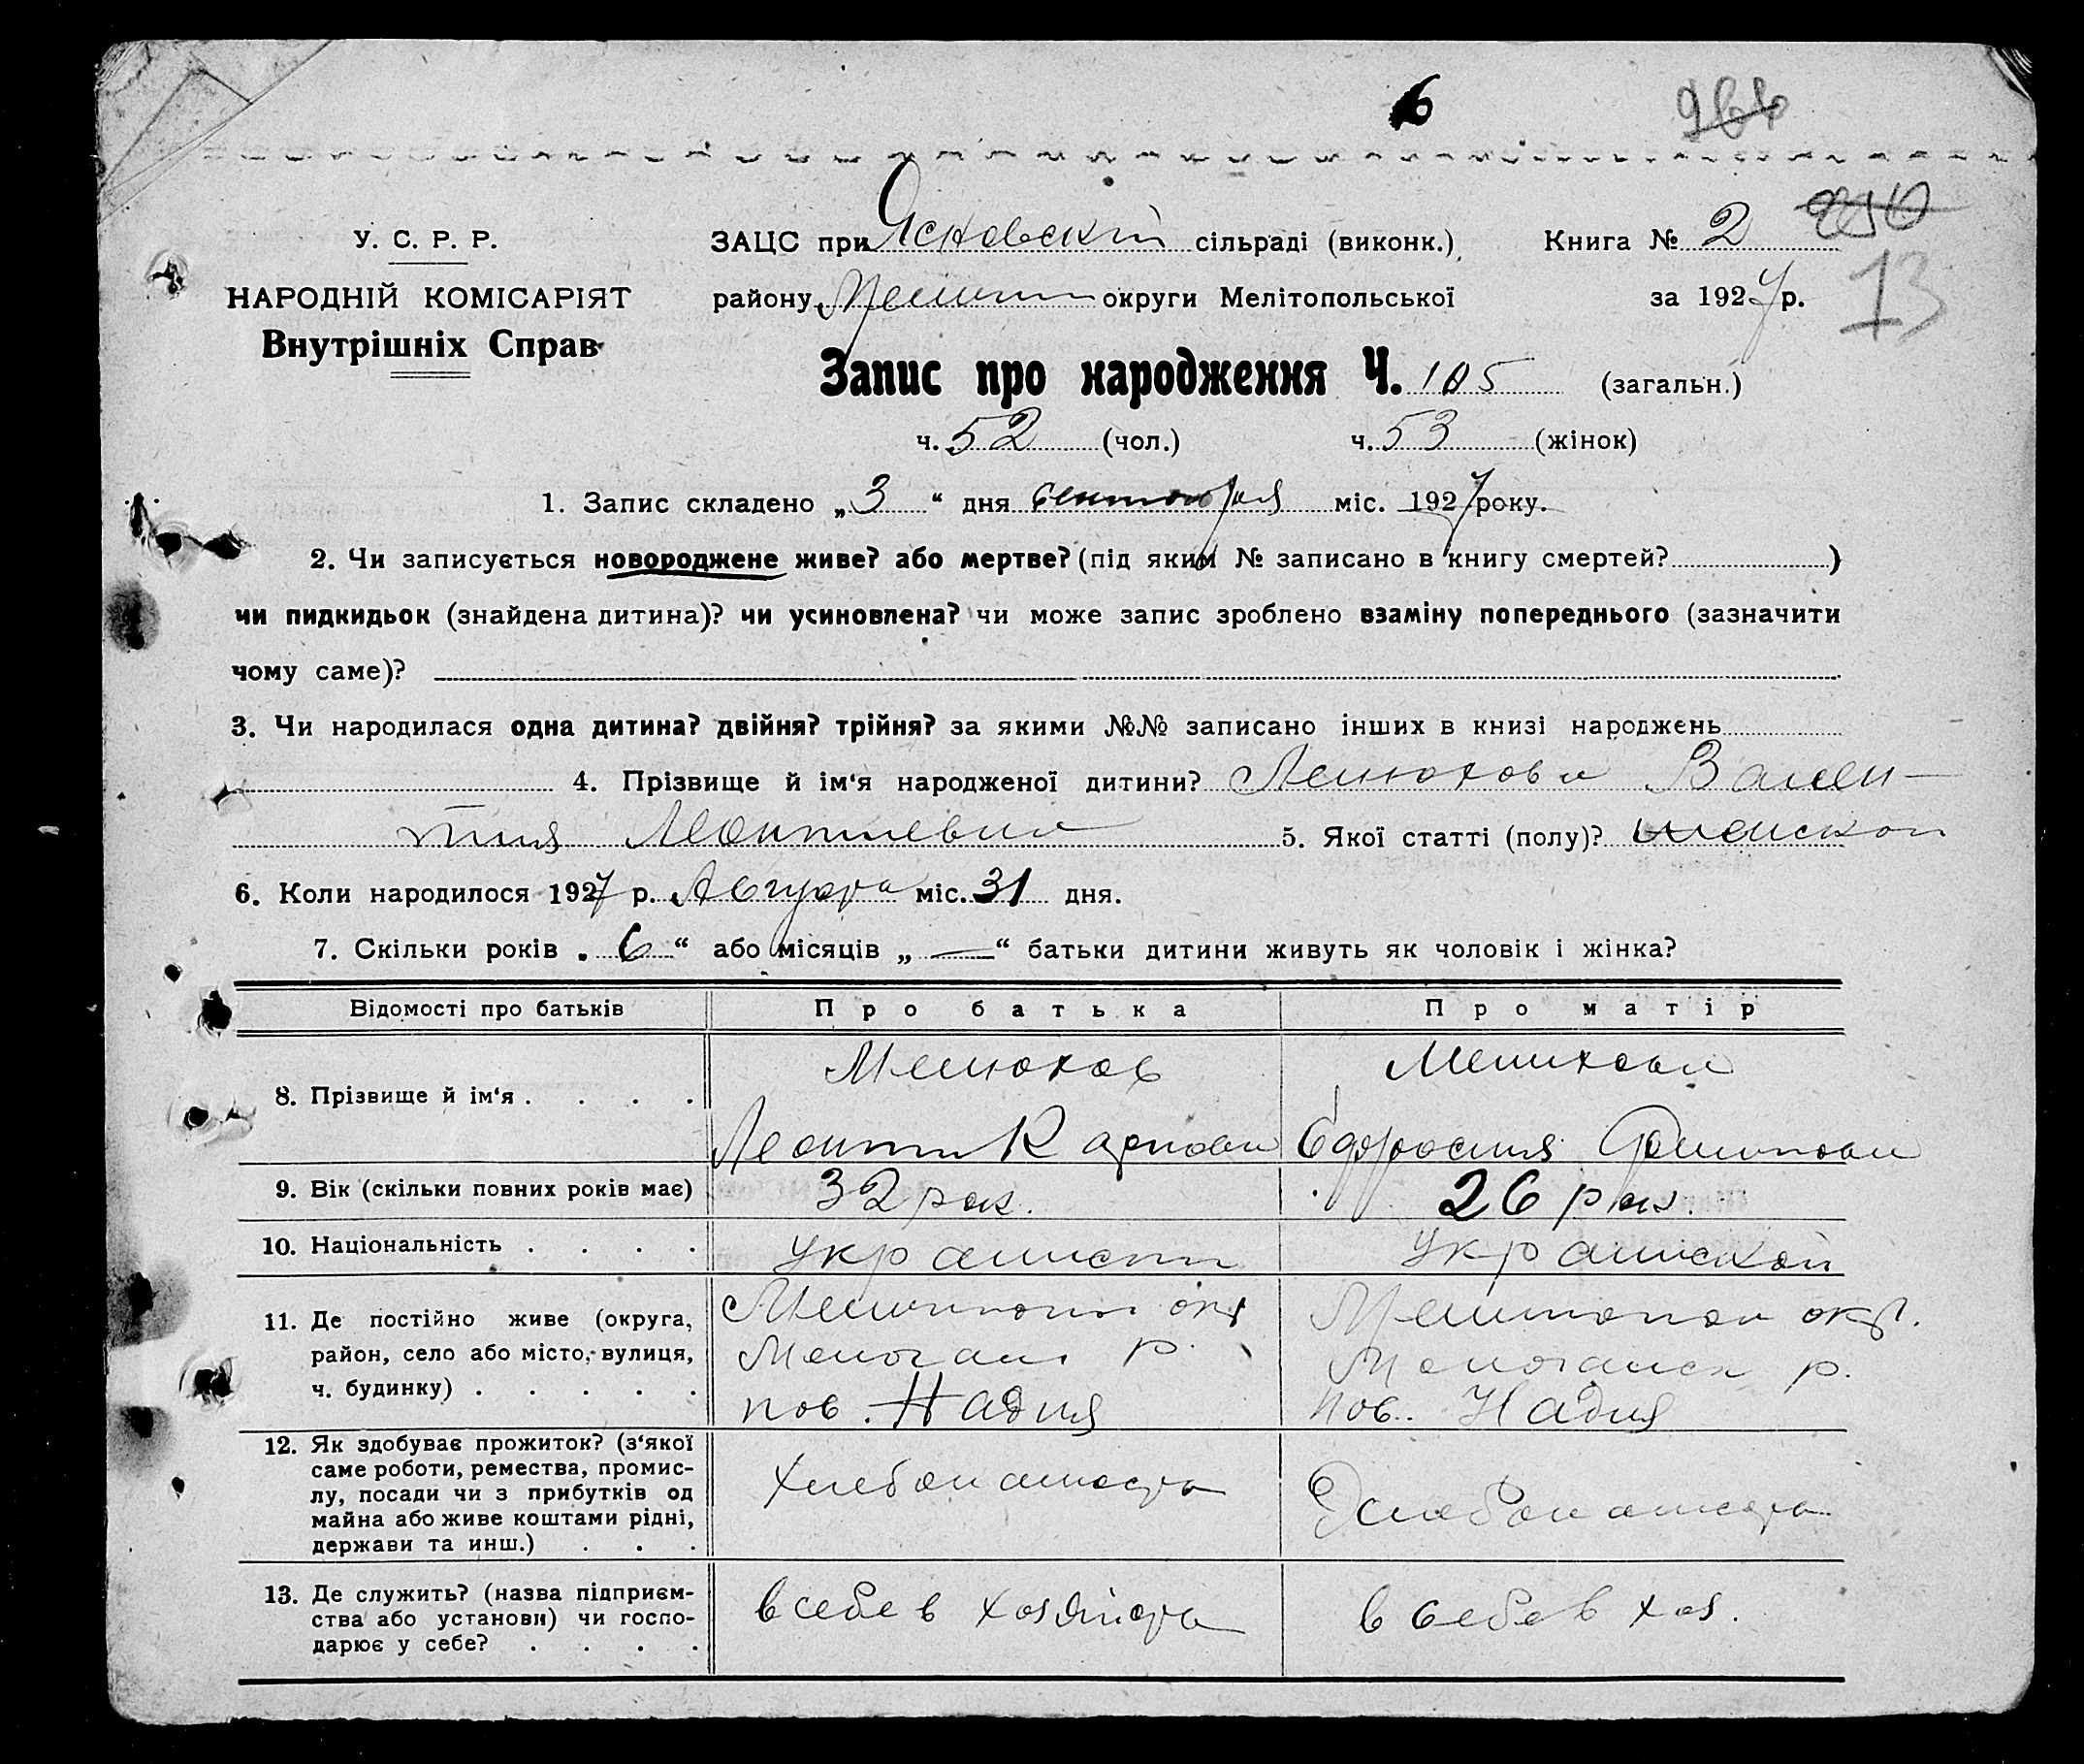 6
964
У. С. Р. Р.
НАРОДНІЙ КОМІСАРІЯТ
Внутрішніх Справ
ЗАЦС при Ясновскій сільраді (виконк.)
Книга № 2
250
району округи Мелітопольської
за 1927 р.
13
Запис про народження Ч. 105 (загальн.)
ч. 52 (чол.) ч. 53 (жінок)
1. Запис складено „3“ дня сентября міс. 1927 року.
2. Чи записується новороджене живе? або мертве? (під яким № записано в книгу смертей? )
чи пидкидьок (знайдена дитина)? чи усиновлена? чи може запис зроблено взаміну попереднього (зазначити
чому саме)?
3. Чи народилася одна дитина? двійня? трійня? за якими №№ записано інших в книзі народжень
4. Прізвище й ім‘я народженої дитини? Вален-
тина Леонтиевна 5. Якої статті (полу)? женской
6. Коли народилося 1927 р. Августа міс. 31 дня.
7. Скільки років „6“ або місяців „—“ батьки дитини живуть як чоловік і жінка?
Відомості про батьків
Про батька
Про матір
8. Прізвище й ім‘я . . . .
Леонтий Карпови
9. Вік (скільки повних років має)
32 рок.
26 рок.
10. Національність . . . .
украинец
украинской
11. Де постійно живе (округа,
район, село або місто, вулиця,
ч. будинку) . . . . .
Мелитопол окр
р.
пов. Надия
Мелитопол окр.
р.
пов. Надия
12. Як здобуває прожиток? (з‘якої
саме роботи, ремества, промис-
лу, посади чи з прибутків од
майна або живе коштами рідні,
держави та инш.) . . .
хлебопашества
хлебопашества
13. Де служить? (назва підприєм-
ства або установи) чи госпо-
дарює у себе? . . . .
в себе в хозяйства
в себе в хоз.